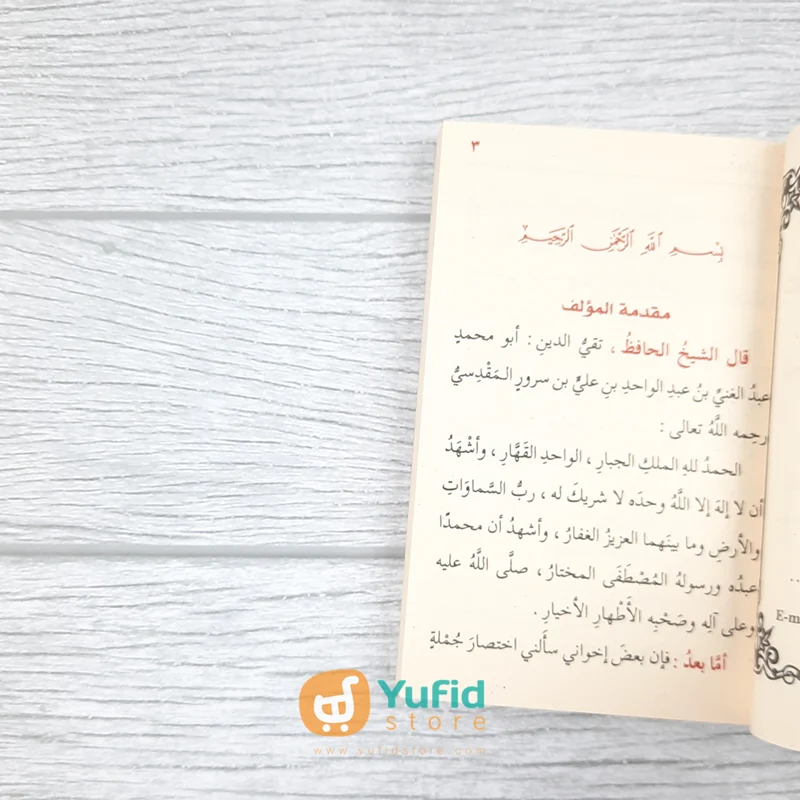 ٣
بِسْمِ اللَّهِ الرَّحْمَٰنِ الرَّحِيمِ
مقدمة المؤلف
قال الشيخُ الحافظُ ، تقيُّ الدينِ : أبو محمدٍ
عبدُ الغنيِّ بنُ عبدِ الواحدِ بنِ عليِّ بن سرورٍ المَقْدِسيُّ
رحِمه اللَّهُ تعالى :
الحمدُ للهِ الملكِ الجبارِ ، الواحدِ القَهَّارِ ، وأشْهَدُ
أن لا إلهَ إلا اللَّهُ وحدَه لا شريكَ له ، ربُّ السَّماوَاتِ
والأرضِ وما بينَهما العزيزُ الغفارُ ، وأشهدُ أن محمدًا
عبدُه ورسولهُ المُصْطَفَى المختارُ ، صلَّى اللَّهُ عليه
وعلى آلِه وصَحْبِه الأَطْهارِ الأخيارِ .
أمَّا بعدُ : فإن بعضَ إخواني سأَلني اختصارَ جُمْلةٍ
E-m
Yufid
store
www.yufidstore.com